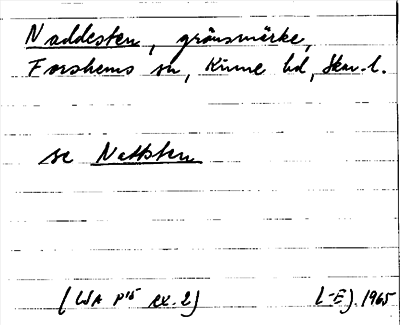 Naddesten, gränsmärke,
Forshems sn, Kinne hd, Skar. l.
se Nattsten
(LSA P15 ex. 2) L-E J. 1965